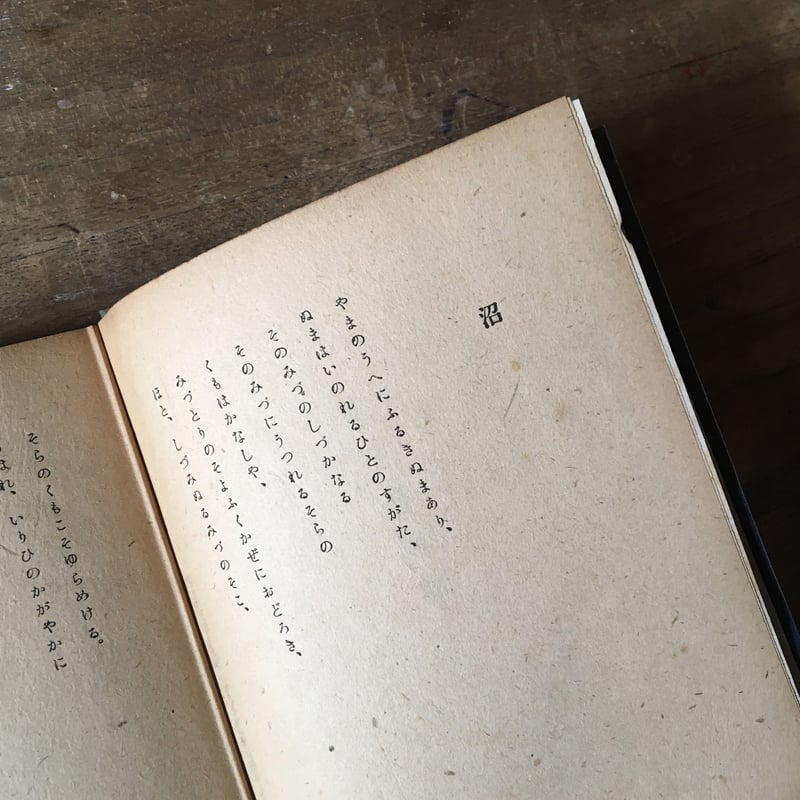 沼
やまのうへにふるきぬまあり、
ぬまはいのれるひとのすがた、
そのみづのしづかなる
そのみづにうつれるそらの
くもはかなしや、
みづとりのそよふくかぜにおどろき、
ほと、しづみぬるみづのそこ、
そらのくもこそゆらめける。
いりひのかがやかに